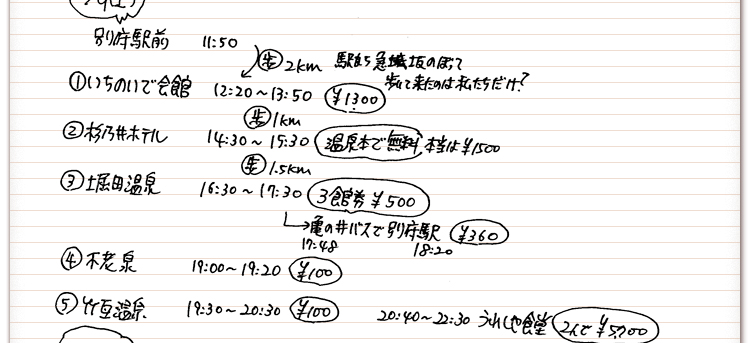 別府駅前 11:50
歩 2km 駅から急な坂の所で
歩いて来たのは私たちだけ?
①いちのいで会館 12:20〜13:50 ¥1300
歩 1km
②杉乃井ホテル 14:30〜15:30 温泉本で無料 本当は¥1500
歩 1.5km
③堀田温泉 16:30〜17:30 3館券¥500
→亀の井バスで別府駅 ¥360
17:48 18:20
④不老泉 19:00〜19:20 ¥100
⑤竹瓦温泉 19:30〜20:30 ¥100 20:40〜22:30 うれしや食堂 2人で¥5,700